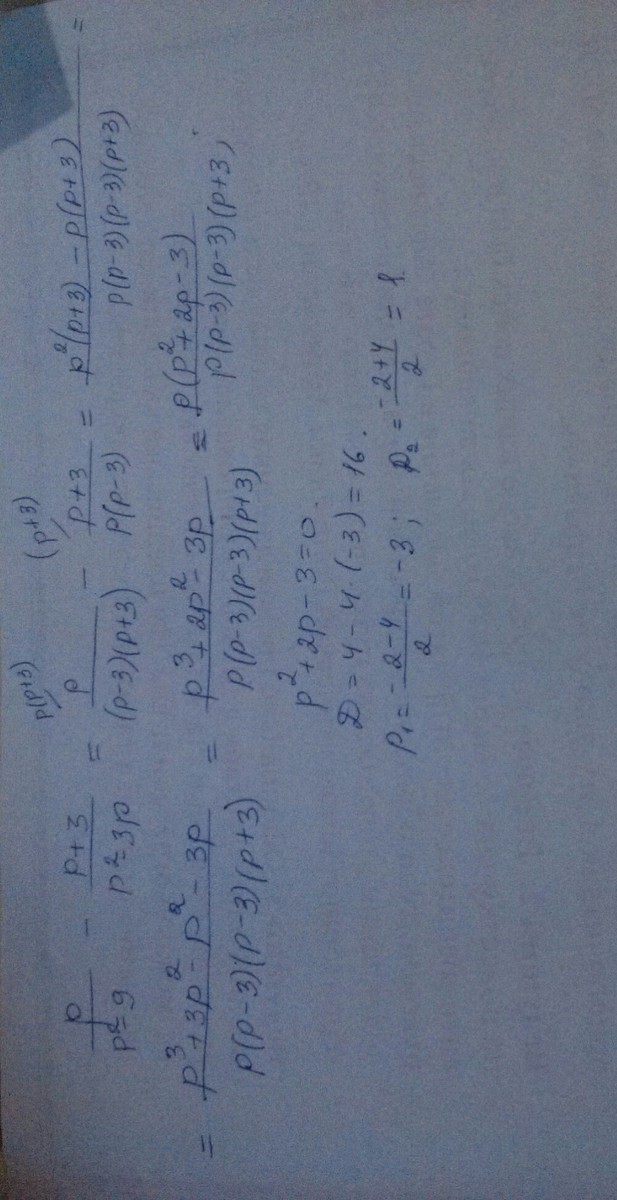 p(p+3) (p+3)
p/(p²-9) - (p+3)/(p²-3p) = p/((p-3)(p+3)) - (p+3)/(p(p-3)) = (p²(p+3) - p(p+3))/(p(p-3)(p-3)(p+3)) =
= (p³+3p²-p²-3p)/(p(p-3)(p-3)(p+3)) = (p³+2p²-3p)/(p(p-3)(p-3)(p+3)) = (p(p²+2p-3))/(p(p-3)(p-3)(p+3;
p²+2p-3=0.
D=4-4·(-3)=16.
p₁=(-2-4)/2=-3; p₂=(-2+4)/2=1.